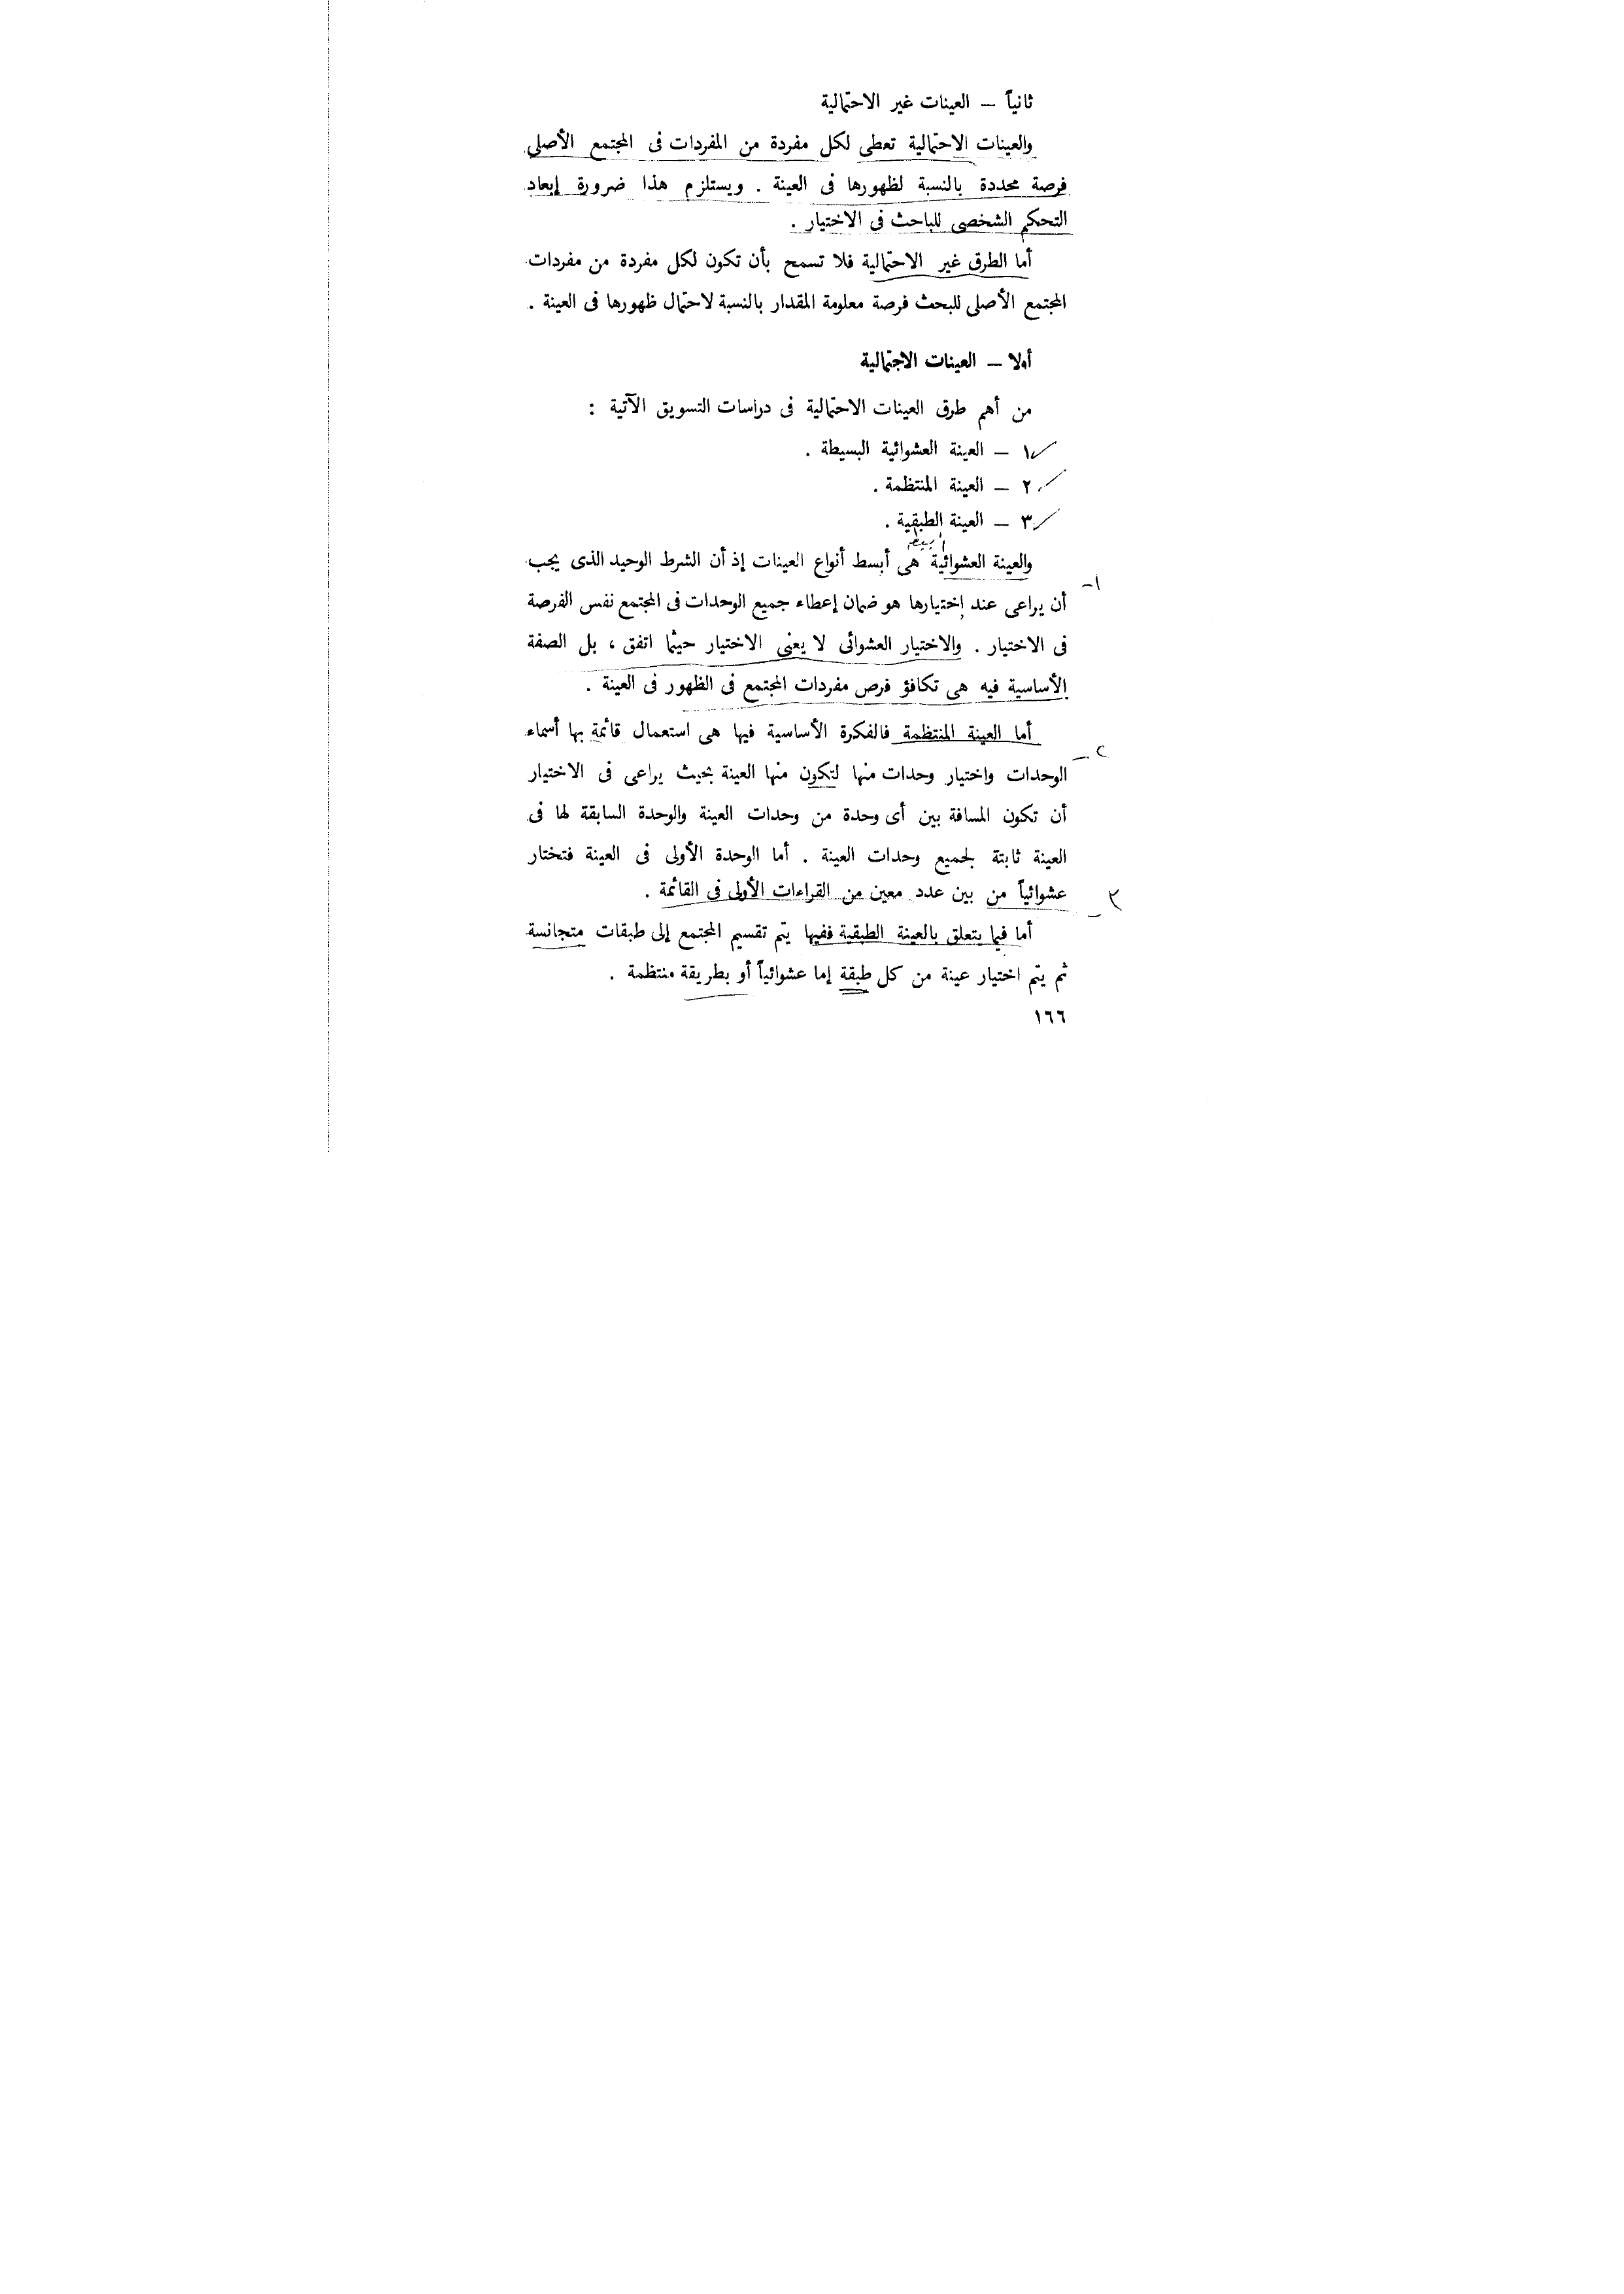 ثانياً — العينات غير الاحتمالية
والعينات الاحتمالية تعطى لكل مفردة من المفردات فى المجتمع الأصلى
فرصة محددة بالنسبة لظهورها فى العينة . ويستلزم هذا ضرورة إبعاد
التحكم الشخصى للباحث فى الاختيار .
أما الطرق غير الاحتمالية فلا تسمح بأن تكون لكل مفردة من مفردات
المجتمع الأصلى للبحث فرصة معلومة المقدار بالنسبة لاحتمال ظهورها فى العينة .
أولا — العينات الاحتمالية
من أهم طرق العينات الاحتمالية فى دراسات التسويق الآتية :
١ — العينة العشوائية البسيطة .
٢ — العينة المنتظمة .
٣ — العينة الطبقية .
والعينة العشوائية هى أبسط أنواع العينات إذ أن الشرط الوحيد الذى يجب
١-
أن يراعى عند إختيارها هو ضمان إعطاء جميع الوحدات فى المجتمع نفس الفرصة
فى الاختيار . والاختيار العشوائى لا يعنى الاختيار حيثما اتفق ، بل الصفة
الأساسية فيه هى تكافؤ فرص مفردات المجتمع فى الظهور فى العينة .
أما العينة المنتظمة فالفكرة الأساسية فيها هى استعمال قائمة بها أسماء
٢-
الوحدات واختيار وحدات منها لتكون منها العينة بحيث يراعى فى الاختيار
أن تكون المسافة بين أى وحدة من وحدات العينة والوحدة السابقة لها فى
العينة ثابتة لجميع وحدات العينة . أما الوحدة الأولى فى العينة فتختار
عشوائياً من بين عدد معين من القراءات الأولى فى القائمة .
٣-
أما فيما يتعلق بالعينة الطبقية ففيها يتم تقسيم المجتمع إلى طبقات متجانسة
ثم يتم اختيار عينة من كل طبقة إما عشوائياً أو بطريقة منتظمة .
١٦٦